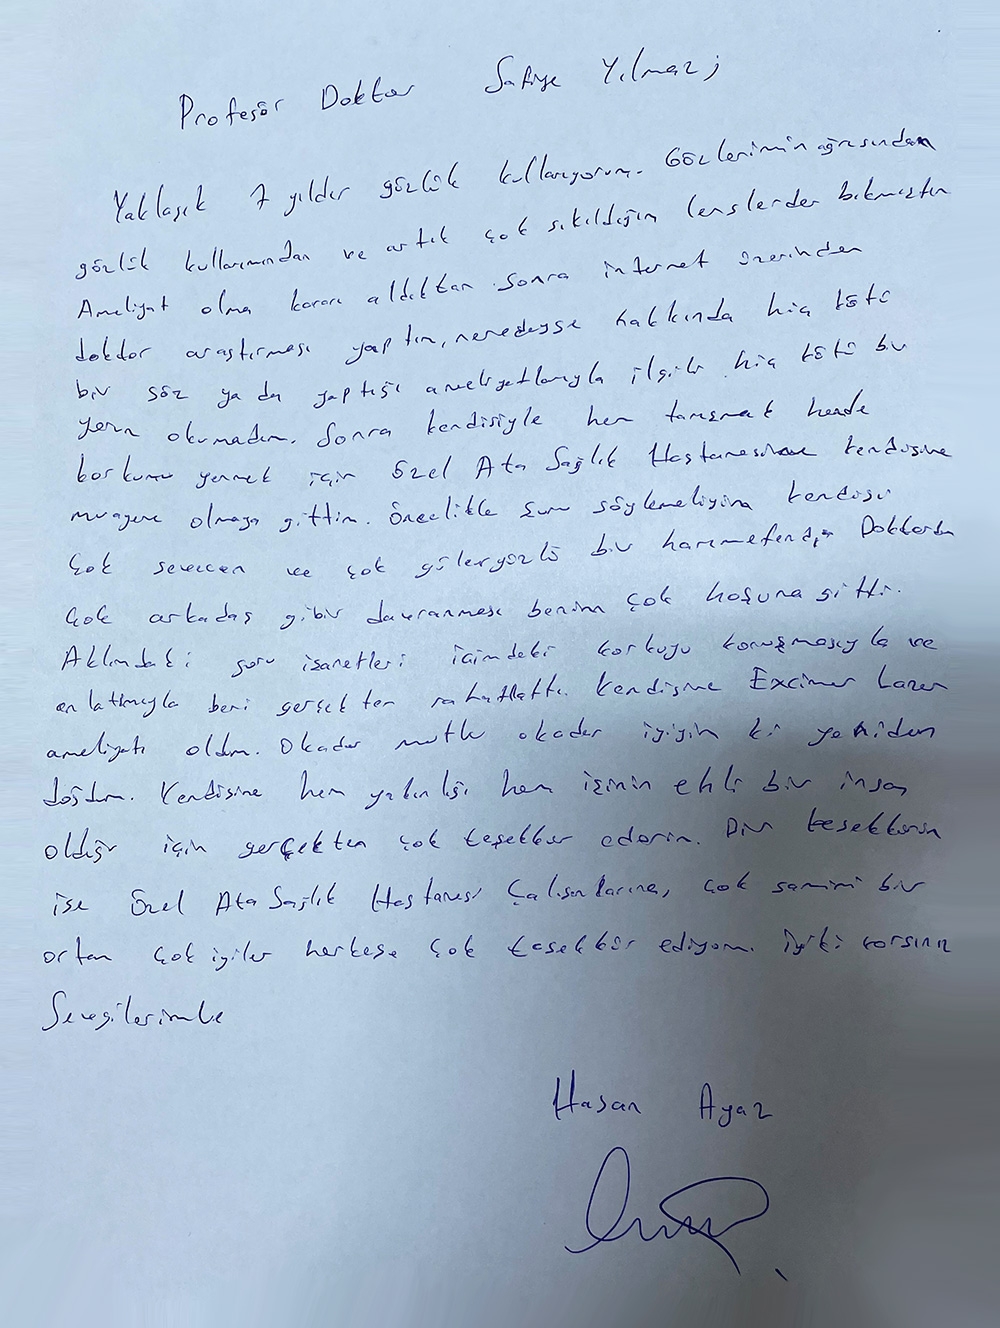 Profesör Doktor Safiye Yılmaz;
Yaklaşık 7 yıldır gözlük kullanıyorum. Gözlerimin ağrısından
gözlük kullanımından ve artık çok sıkıldığım lenslerden bıkmıştım
Ameliyat olma kararı aldıktan sonra internet üzerinden
doktor araştırması yaptım, neredeyse hakkında hiç kötü
bir söz ya da yaptığı ameliyatlarıyla ilgili hiç kötü bir
yorum okumadım. Sonra kendisiyle hem tanışmak hemde
korkumu yenmek için Özel Ata Sağlık Hastanesine kendisine
muayene olmaya gittim. Öncelikle şunu söylemeliyim kendisi
çok sevecen ve çok güleryüzlü bir hanımefendi, Doktordan
çok arkadaş gibi davranması benim çok hoşuma gitti.
Aklımdaki soru işaretleri içimdeki korkuyu konuşmasıyla ve
anlatımıyla beni gerçekten rahatlattı. Kendisine Excimer Lazer
ameliyatı oldum. Okadar mutlu okadar iyiyim ki yeniden
doğdum. Kendisine hem yakınlığı hem işinin ehli bir insan
olduğu için gerçekten çok teşekkür ederim. Diğer teşekkürüm
ise Özel Ata Sağlık Hastanesi Çalışanlarına, çok samimi bir
ortam çok iyiler herkese çok teşekkür ediyom. İyiki varsınız
Sevgilerimle
Hasan Ayaz